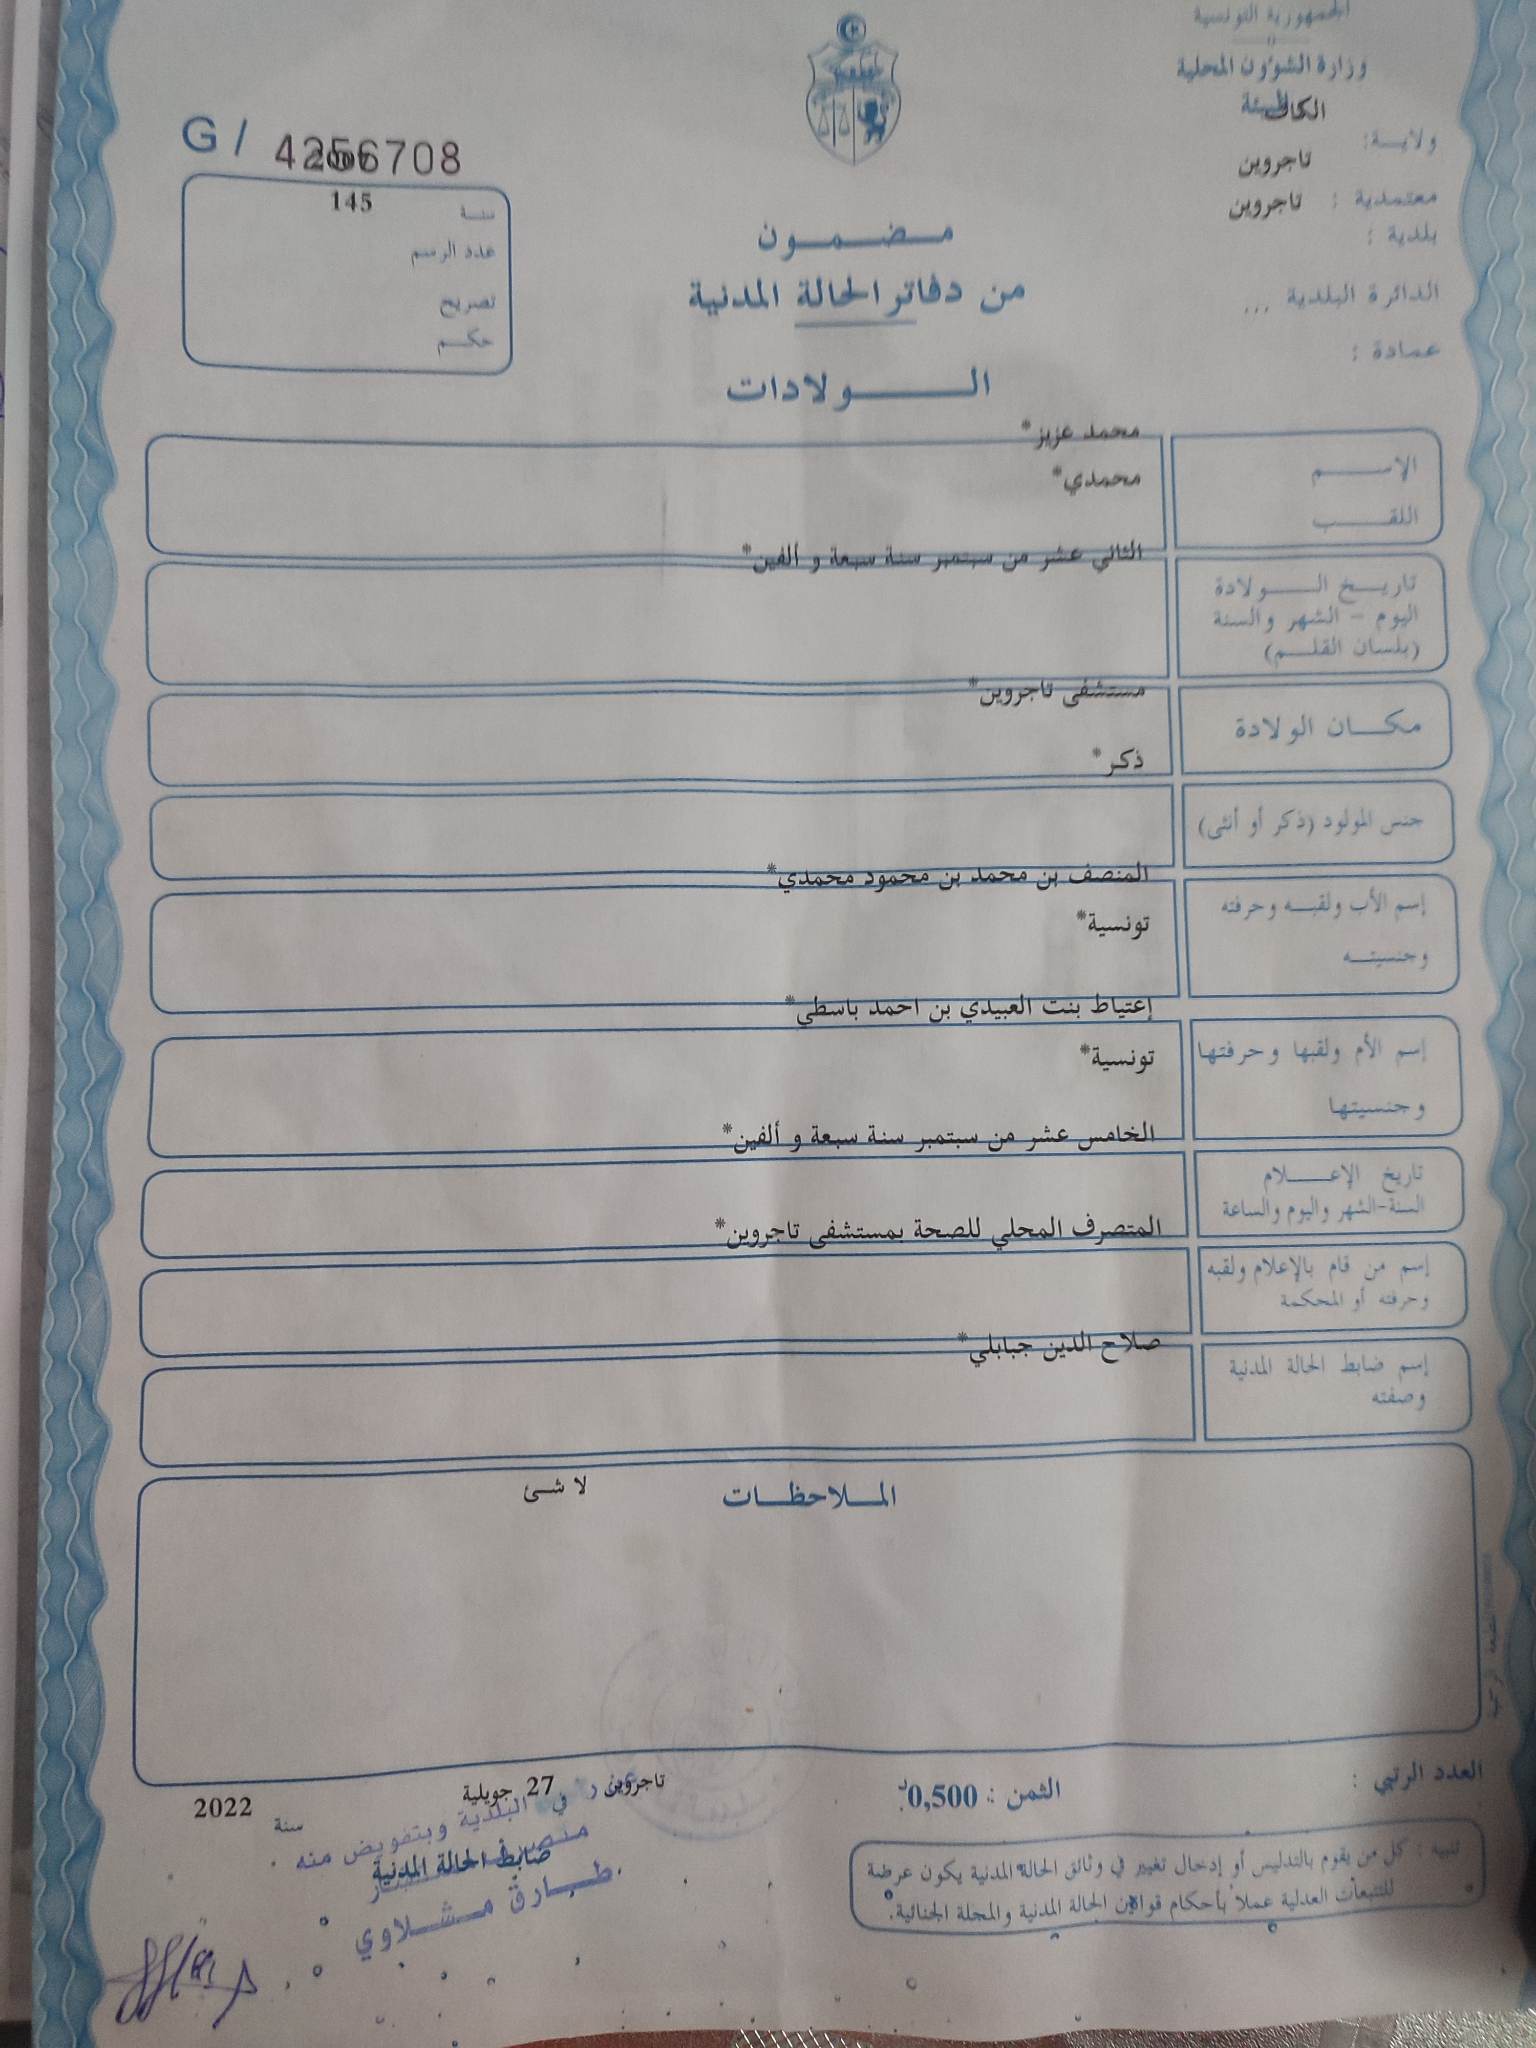 الجمهورية التونسية
وزارة الشؤون المحلية
والبيئة
ولاية: الكاف
معتمدية : تاجروين
بلدية : تاجروين
الدائرة البلدية ...
عمادة :
G / 4256708
سنة
145
عدد الرسم
تصريح
حكم
مضمون
من دفاتر الحالة المدنية
الولادات
الإسم
محمد عزيز*
اللقب
محمدي*
تاريخ الولادة
اليوم - الشهر والسنة
(بلسان القلم)
الثاني عشر من سبتمبر سنة سبعة و ألفين*
مكان الولادة
مستشفى تاجروين*
جنس المولود (ذكر أو أنثى)
ذكر*
إسم الأب ولقبه وحرفته
وجنسيته
المنصف بن محمد بن محمود محمدي*
تونسية*
إسم الأم ولقبها وحرفتها
وجنسيتها
إعتياط بنت العبيدي بن احمد باسطي*
تونسية*
تاريخ الإعلام
السنة-الشهر واليوم والساعة
الخامس عشر من سبتمبر سنة سبعة و ألفين*
إسم من قام بالإعلام ولقبه
وحرفته أو المحكمة
المتصرف المحلي للصحة بمستشفى تاجروين*
إسم ضابط الحالة المدنية
وصفته
صلاح الدين جبابلي*
الملاحظات
لا شئ
العدد الرتبي :
الثمن : 0,500د
تاجروين في 27 جويلية سنة 2022
البلدية وبتفويض منه
ضابط الحالة المدنية
طارق مشلاوي
تنبيه : كل من يقوم بالتدليس أو إدخال تغيير في وثائق الحالة المدنية يكون عرضة
للتتبعات العدلية عملا بأحكام قوانين الحالة المدنية والمجلة الجنائية.